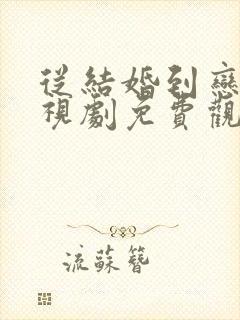 從結婚到戀
視劇免費觀
流蘇簪